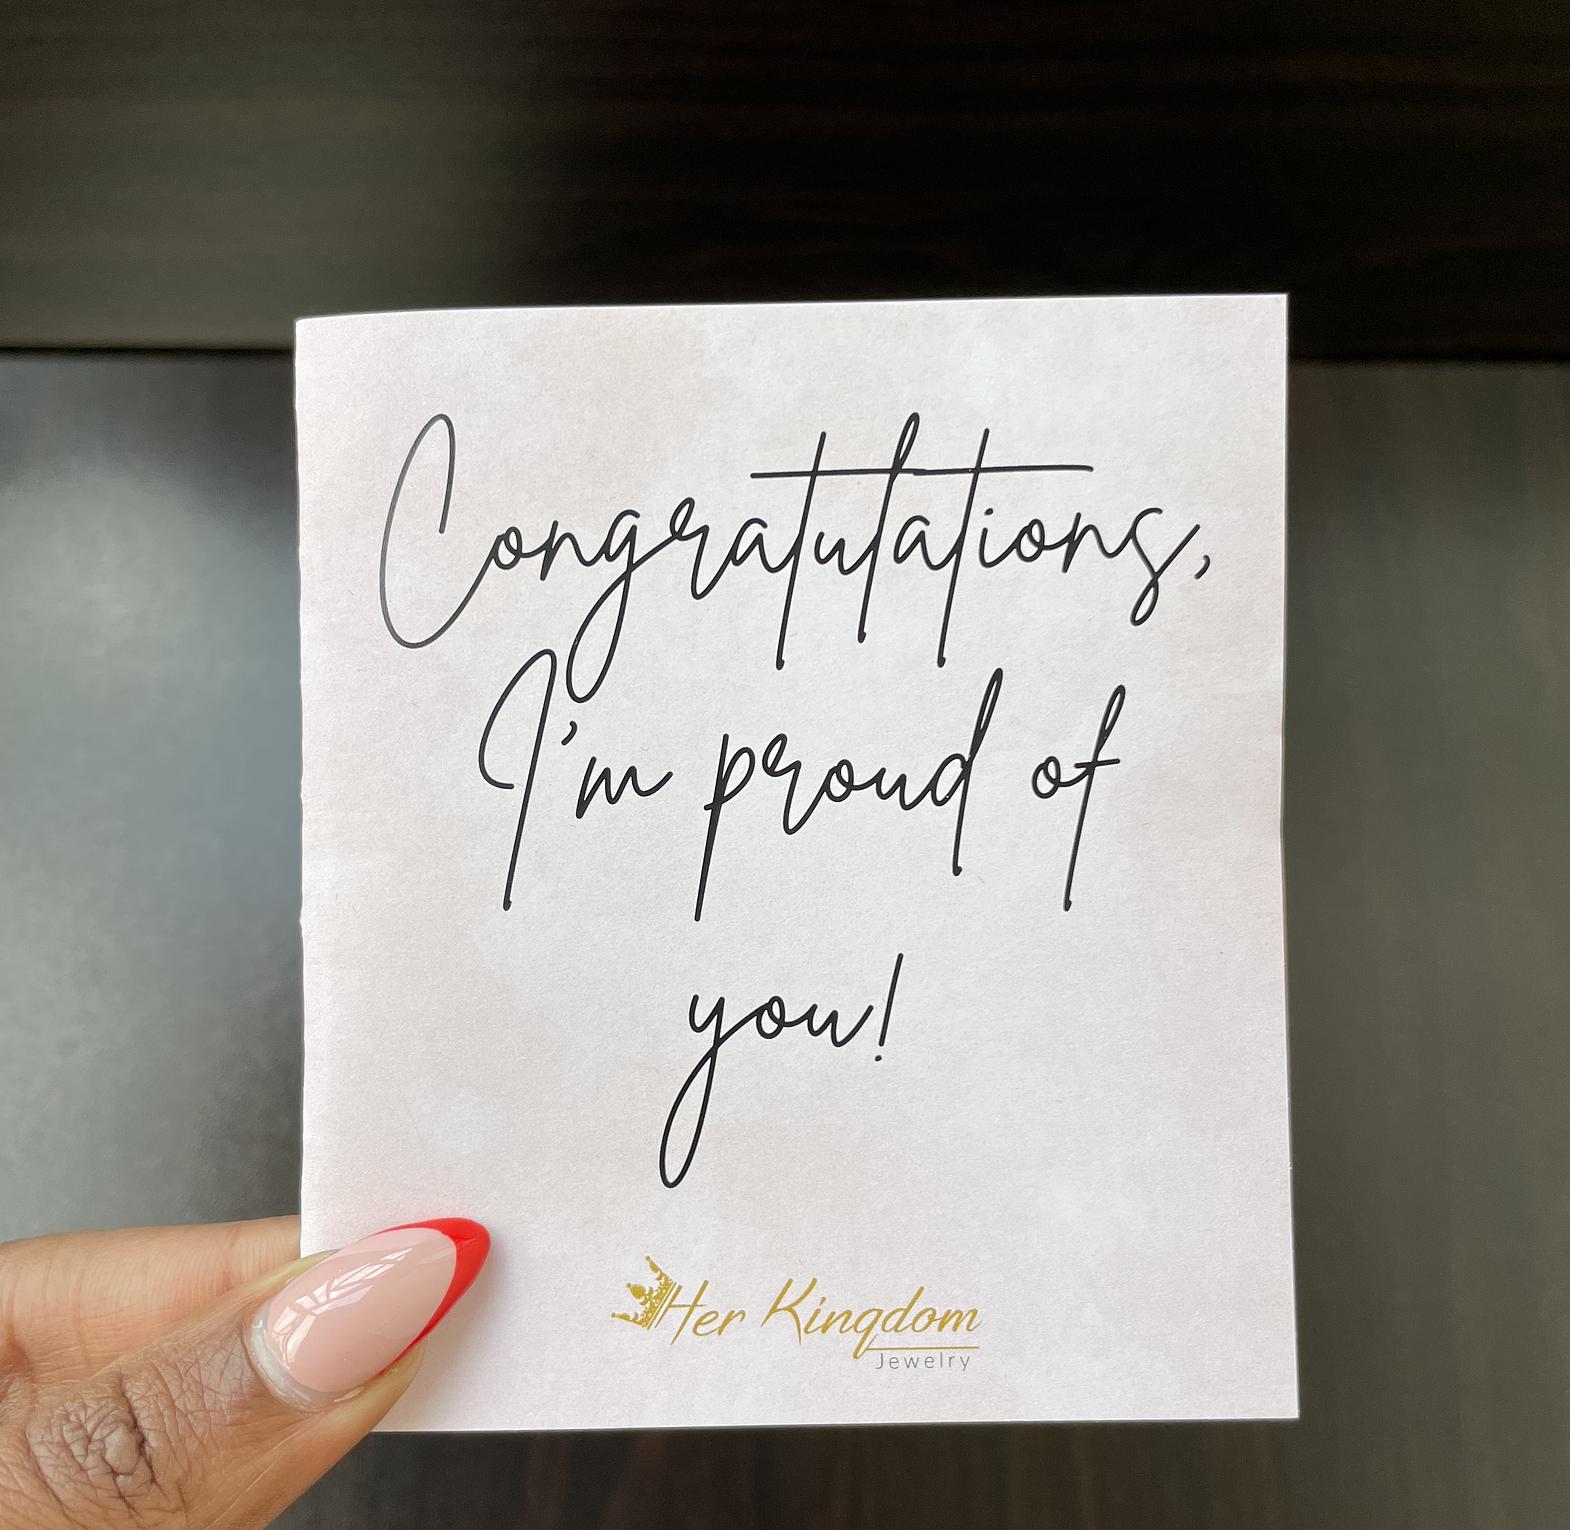 Congratulations,
I'm proud of
you!
Her Kingdom
Jewelry